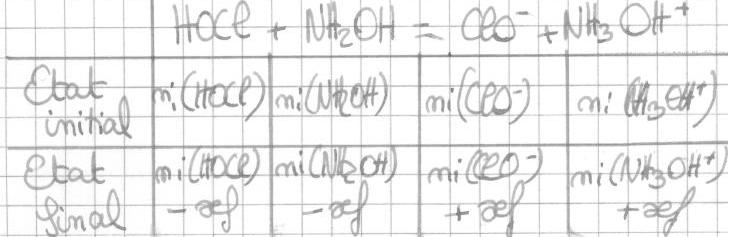 HOCl + NH₂OH = ClO⁻ + NH₃OH⁺
Etat initial | ni(HOCl) | ni(NH₂OH) | ni(ClO⁻) | ni(NH₃OH⁺)
Etat final | ni(HOCl) - xf | ni(NH₂OH) - xf | ni(ClO⁻) + xf | ni(NH₃OH⁺) + xf